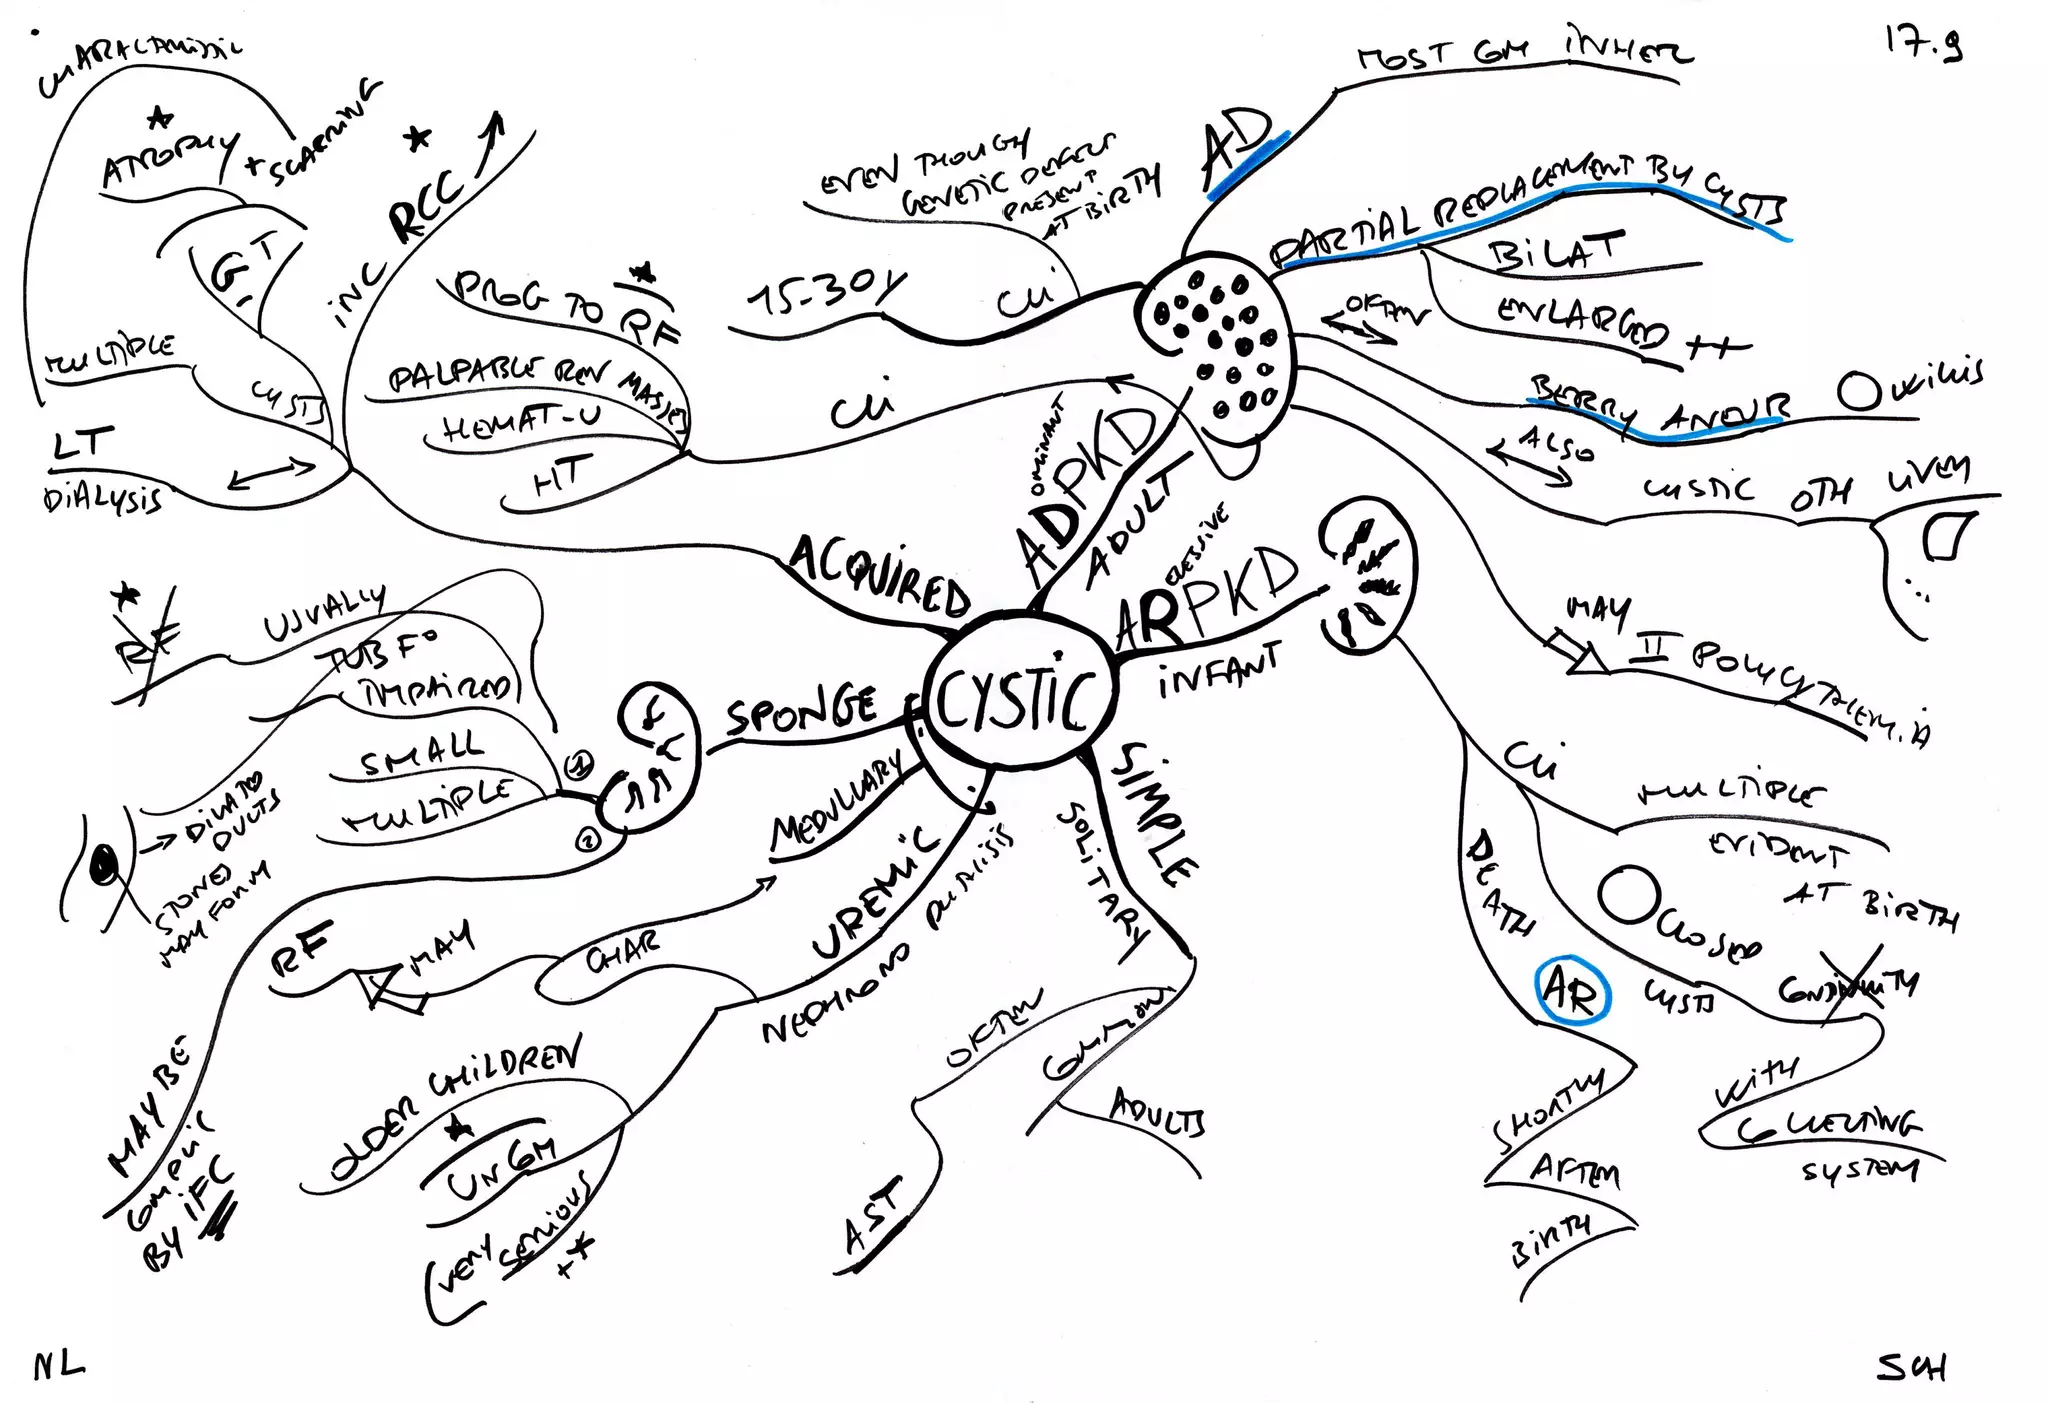 17.9
MOST COM INHER
AD
PARTIAL REPLACEMENT BY CYSTS
BILAT
ENLARGED ++
OFTEN
BERRY ANEUR
O WILLIS
ALSO
CYSTIC OTH LIVER
MAY
II POLYCYTHEM.iA
EVEN THOUGH
GENETIC DEFECT
PRESENT
AT BIRTH
15-30Y
CLi
CLi
PROG TO RF
PALPABLE REN MASSES
HEMAT-U
HT
ADPKD
OMINANT
ADULT
ARPKD
ECESSIVE
INFANT
CLi
MULTIPLE
EVIDENT
AT BIRTH
CLOSED
CYSTS
CONTINUITY
WITH
COLLECTING
SYSTEM
DEATH
AR
SHORTLY
AFTER
BIRTH
CYSTIC
SIMPLE
SOLITARY
COMMON
ADULTS
OFTEN
AST
UREMIC
MEDULLARY
NEPHRONO
CHAR
MAY
RF
OLDER CHILDREN
UNCOM
(VERY
SERIOUS
+*
SPONGE
1
2
MULTIPLE
SMALL
TUB F°
IMPAIRED
USUALLY
RF
DILATD
DUCTS
STONES
MAY FORM
MAY BE
COMPLIC
BY IFC
ACQUIRED
LT
DIALYSIS
MULTIPLE
CYSTS
GT
ATROPHY
+ SCARRING
INC
RCC
NL
SCH